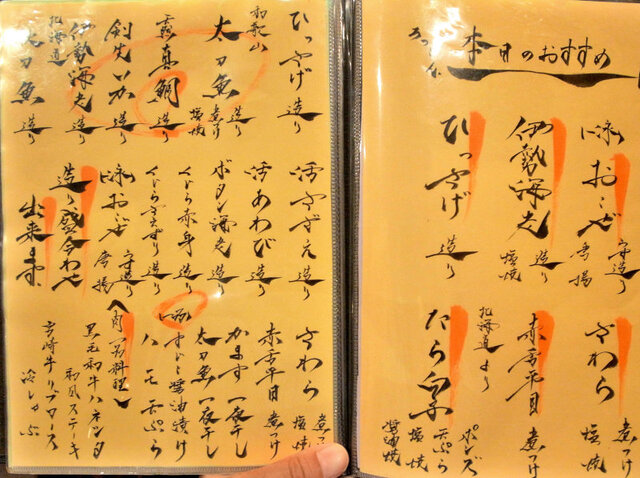 本日のおすすめ
泳おこぜ 守造り 唐揚
伊勢海老 造り 塩焼
ひっさげ 造り
さわら 煮つけ 塩焼
赤舌平目 煮つけ
北海道より
たら白子 ポンズ 天ぷら 塩焼 醤油焼
ひっさげ 造り
和歌山
太刀魚 造り 煮つけ 塩焼
真鯛 造り
剣先いか 造り
伊勢海老 造り
北海道
太刀魚 造り
活さざえ 造り
活あわび 造り
ボタン海老 造り
くじら赤身 造り
くじらさえずり 造り
泳おこぜ 守造り 唐揚
造り盛合わせ
出来ます
さわら 煮つけ 塩焼
赤舌平目 煮つけ
かます一夜干し
太刀魚一夜干し
醤油漬け
ハモ天ぷら
肉一品料理
黒毛和牛ハネシタ
和風ステーキ
宮崎牛リブロース
冷しゃぶ